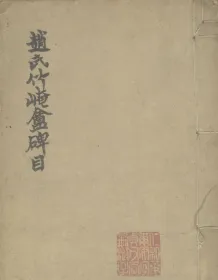 趙氏竹崦盦碑目